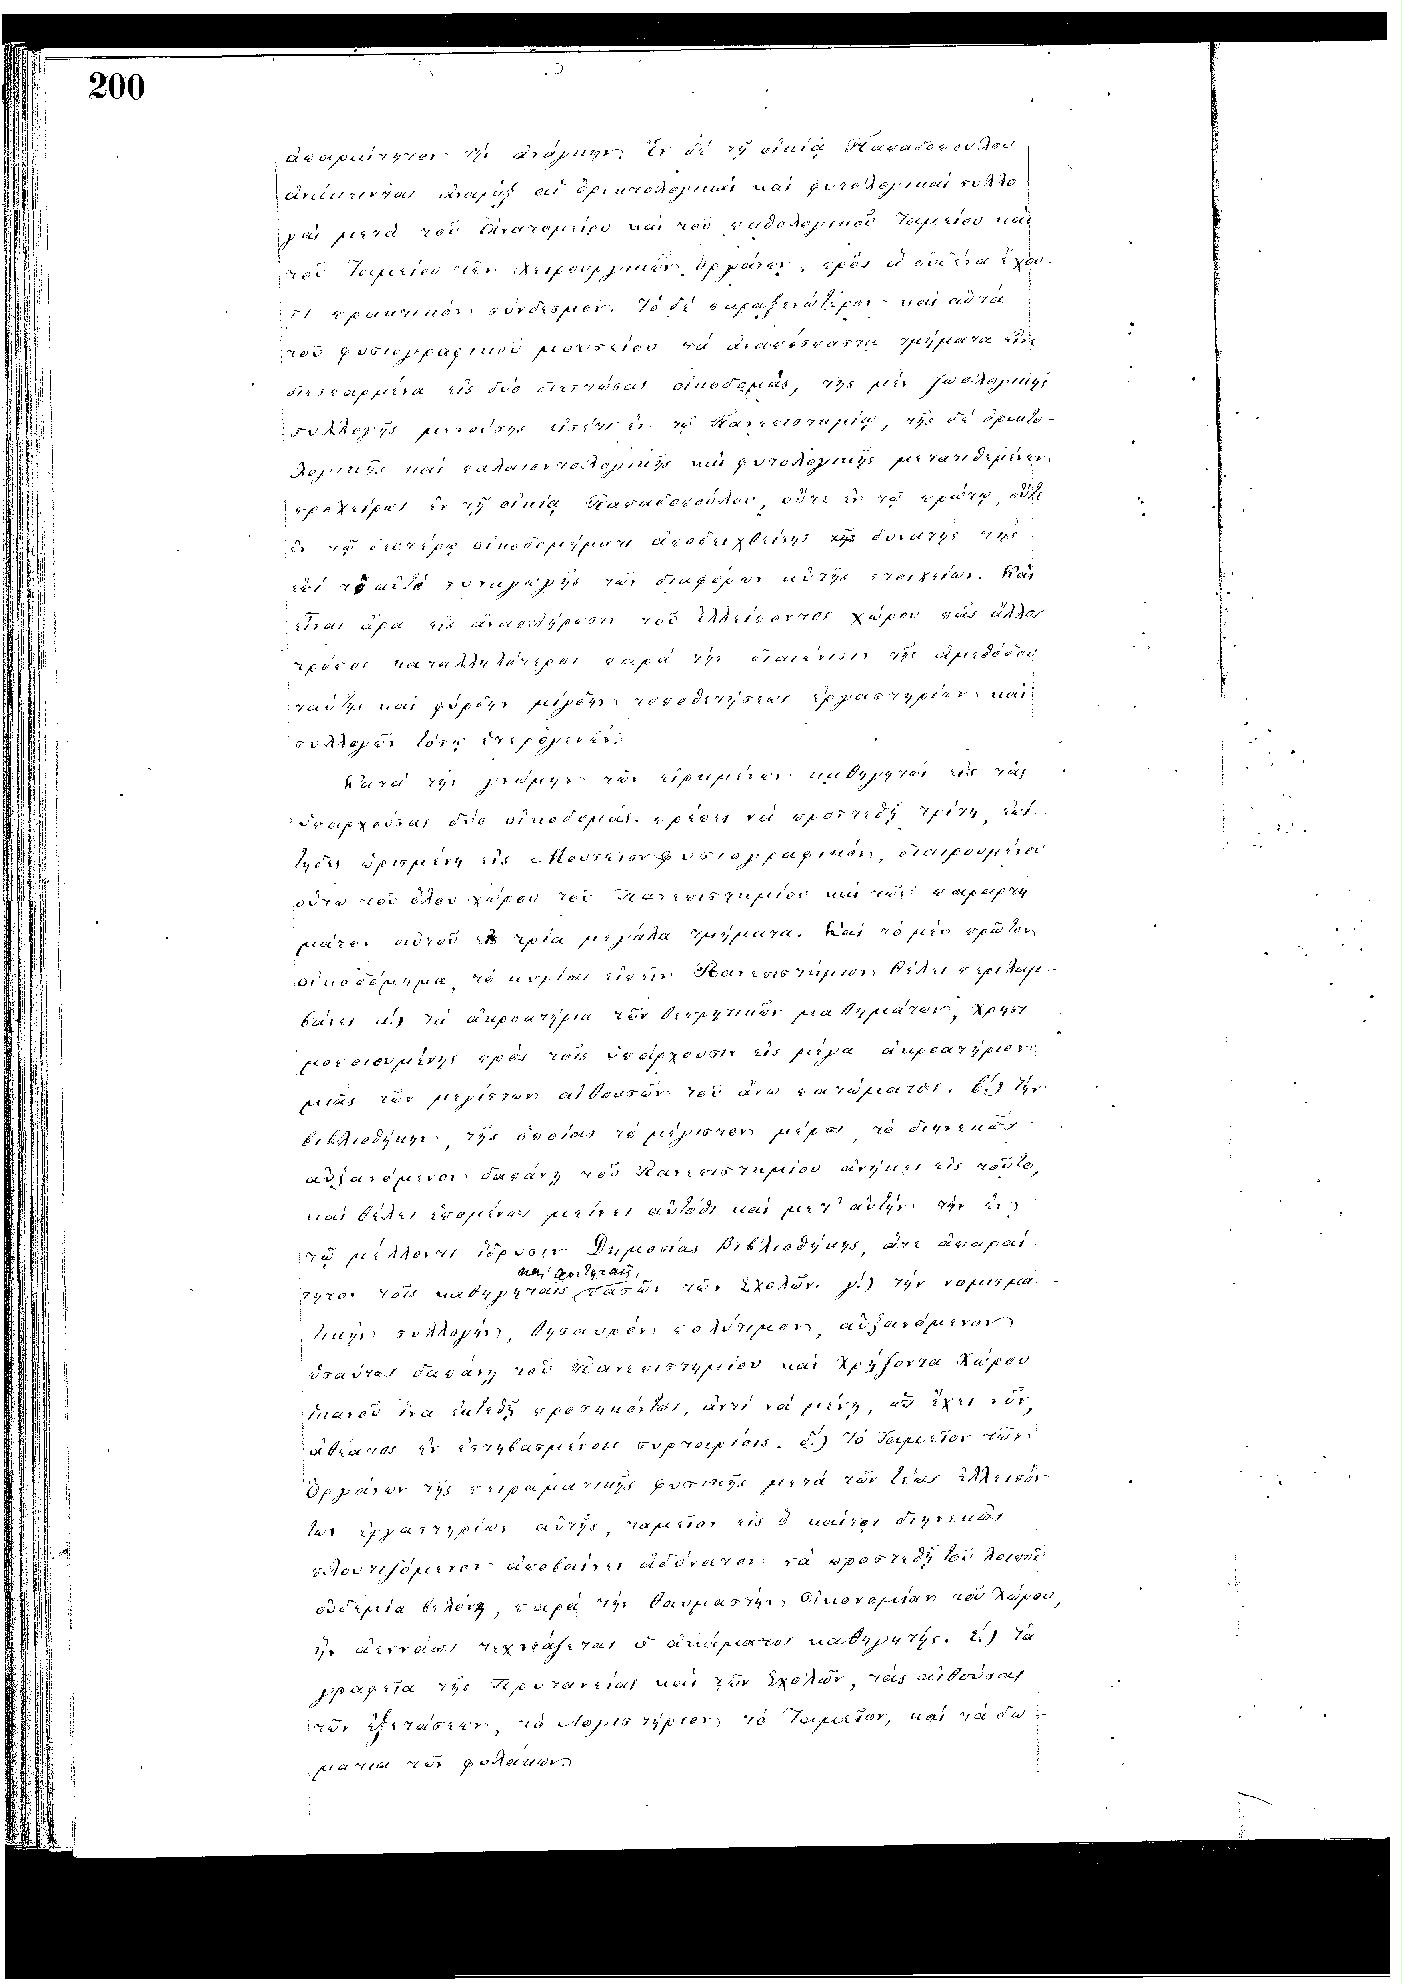 200
ἀπαραίτητον τὴν ἀνάγκην. Ἐν δὲ τῇ οἰκίᾳ Παπαδοπούλου
ἀνάκεινται ἀναμὶξ αἱ ὀρυκτολογικαὶ καὶ φυτολογικαὶ συλλο
γαὶ μετὰ τοῦ Ἀνατομείου καὶ τοῦ παθολογικοῦ Ταμείου καὶ
τοῦ Ταμείου τῶν Χειρουργικῶν ὀργάνων, πρὸς ἃ οὐδένα ἔχου-
σι πρακτικὸν σύνδεσμον. Τὸ δὲ παραξενώτερον καὶ αὐτὰ
τοῦ φυσιογραφικοῦ μουσείου τὰ ἀναπόσπαστα τμήματα εἶνε
διεσπαρμένα εἰς δύο διεστώσας οἰκοδομάς, τῆς μὲν ζωολογικῆς
συλλογῆς μενούσης εἰσέτι ἐν τῷ Πανεπιστημίῳ, τῆς δὲ ὀρυκτο-
λογικῆς καὶ παλαιοντολογικῆς καὶ φυτολογικῆς μετατιθεμένων
προχείρως ἐν τῇ οἰκίᾳ Παπαδοπούλου, οὔτε ἐν τῷ πρώτῳ, οὔτε
ἐν τῷ δευτέρῳ οἰκοδομήματι ἀποδειχθείσης τῆς δυνατῆς τῆς
ἐπὶ τὸ αὐτὸ συναγωγῆς τῶν διαφόρων αὐτῆς στοιχείων. Καὶ
εἶναι ἄρα εἰς ἀναπλήρωσιν τοῦ ἐλλείποντος χώρου πᾶς ἄλλος
τρόπος καταλληλότερος παρὰ τὴν διαιώνισιν τῆς ἀμεθόδου
ταύτης καὶ φύρδην μίγδην τοποθετήσεως ἐργαστηρίων καὶ
συλλογῶν τόσῳ ἑτερογενῶν.
Κατὰ τὴν γνώμην τῶν εἰρημένων καθηγητῶν εἰς τὰς
ὑπαρχούσας δύο οἰκοδομὰς πρέπει νὰ προστεθῇ τρίτη, ἐπί
τηδες ὡρισμένη εἰς Μουσεῖον φυσιογραφικόν, διαιρουμένου
οὕτω τοῦ ὅλου χώρου τοῦ Πανεπιστημίου καὶ τῶν παραρτη
μάτων αὐτοῦ εἰς τρία μεγάλα τμήματα. Καὶ τὸ μὲν πρῶτον
οἰκοδόμημα, τὸ κυρίως εἰπεῖν Πανεπιστήμιον θέλει περιλαμ-
βάνει α΄.) τὰ ἀκροατήρια τῶν θεωρητικῶν μαθημάτων, χρησι
μοποιουμένης πρὸς τοῖς ὑπάρχουσιν εἰς μέγα ἀκροατήριον
μιᾶς τῶν μεγίστων αἰθουσῶν τοῦ ἄνω πατώματος. β΄.) τὴν
βιβλιοθήκην, τῆς ὁποίας τὸ μέγιστον μέρος, τὸ διηνεκῶς
αὐξανόμενον δαπάνῃ τοῦ Πανεπιστημίου ἀνήκει εἰς τοῦτο,
καὶ θέλει ἑπομένως μείνει αὐτόθι καὶ μετ' αὐτὴν τὴν ἐν
τῷ μέλλοντι ἵδρυσιν Δημοσίας Βιβλιοθήκης, ἅτε ἀπαραί
και φοιτηταῖς
τητον τοῖς καθηγηταῖς πασῶν τῶν Σχολῶν. γ΄.) τὴν νομισμα
τικὴν συλλογήν, θησαυρὸν πολύτιμον, αὐξανόμενον
ὡσαύτως δαπάνῃ τοῦ Πανεπιστημίου καὶ χρῄζοντα χώρου
ἱκανοῦ ἵνα ἐκτεθῇ προσηκόντως, ἀντὶ νὰ μένῃ, ὡς ἔχει νῦν,
ἀθέατος ἐν ἐστιβασμένοις συρταρίοις. δ΄.) τὸ Ταμεῖον τῶν
Ὀργάνων τῆς πειραματικῆς φυσικῆς μετὰ τῶν τέως ἐλλειπόν
των ἐργαστηρίων αὐτῆς, ταμεῖον εἰς ὃ καίπερ διηνεκῶς
πλουτιζόμενον ἀποβαίνει ἀδύνατον νὰ προστεθῇ τοῦ λοιποῦ
οὐδεμία βελόνη, παρὰ τὴν θαυμαστὴν οἰκονομίαν τοῦ χώρου,
ἣν ἀεννάως τεχνάζεται ὁ ἀκάματος καθηγητής. ε΄.) Τὰ
γραφεῖα τῆς Πρυτανείας καὶ τῶν Σχολῶν, τὰς αἰθούσας
τῶν ἐξετάσεων, τὸ Λογιστήριον, τὸ Ταμεῖον, καὶ τὰ δω-
μάτια τῶν φυλάκων.